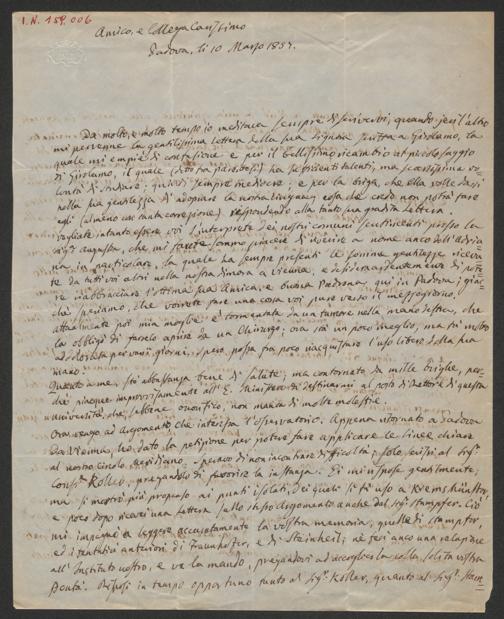 I.N. 159.006
Amico, e Collega Carissimo
Padova, li 10 Marzo 1857.
Da molto, e molto tempo io meditava sempre di scrivervi, quando jeri l'altro
mi pervenne la gentilissima lettera della sua Signora scritta a Girolamo, la
quale mi empie di confusione e per il bellissimo ricambio al piccolo saggio
di Girolamo, il quale (detto fra di noi) ha sufficienti talenti, ma scarsissima vo-
lontà di studiare; quindi sempre mediocre; e per la briga, che ella volle darsi
nella sua gentilezza di adoprare la nostra lingua, cosa che credo non potrà fare
egli (almeno con tanta correzione) rispondendo alla tanto sua gradita lettera.
Vogliate intanto essere voi l'interprete dei nostri comuni sentimenti presso la
Sig.ra Augusta, che mi farete sommo piacere di riverire a nome anco dell'Adria-
na in particolare, la quale ha sempre presenti le somme gentilezze ricevu-
te da tutti voi altri nella nostra dimora a Vienna, e desidera ardentemente di pote-
re riabbracciare l'ottima sua Amica, e buona Padrona, qui in Padova; giac-
chè speriamo, che vorrete fare una volta voi pure verso il mezzogiorno.
Attualmente poi mia moglie è tormentata da un tumore nella mano destra, che
la obbligò di farselo aprire da un Chirurgo; ora sta un poco meglio, ma fu molto
addolorata per varii giorni, spero, possa fra poco riacquistare l'uso libero della sua
mano.
Quanto a me, stò abbastanza bene di salute; ma contornato da mille brighe, per-
chè piacque improvvisamente all'E. Ministero di destinarmi al posto di Rettore di questa
università, che, sebbene onorifico, non manca di molte molestie.
Ora vengo ad argomento che interessa l'osservatorio. Appena ritornato a Padova
da Vienna, ho dato la petizione per potere fare applicare le linee chiare
al nostro Circolo meridiano, sperava di non incontrare difficoltà; solo scrissi al Sig.r
Cons.r Koller, pregandolo di favorire la instanza. Ei mi rispose gentilmente;
ma si mostrò più propenso ai punti isolati, dei quali si fè uso a Kremsmünster,
e poco dopo ricevei una lettera sullo stesso argomento anche dal Sig.r Stampfer. Ciò
mi indusse a leggere accuratamente la vostra memoria, quelle di Stampfer,
ed i tentativi anteriori di Fraunhofer, e di Steinheil; ne feci anco una relazione
all'Instituto nostro, e ve la mando, pregandovi ad accoglierla colla solita vostra
bontà. Risposi in tempo opportuno tanto al Sig.r Koller, quanto al Sig.r Stam-